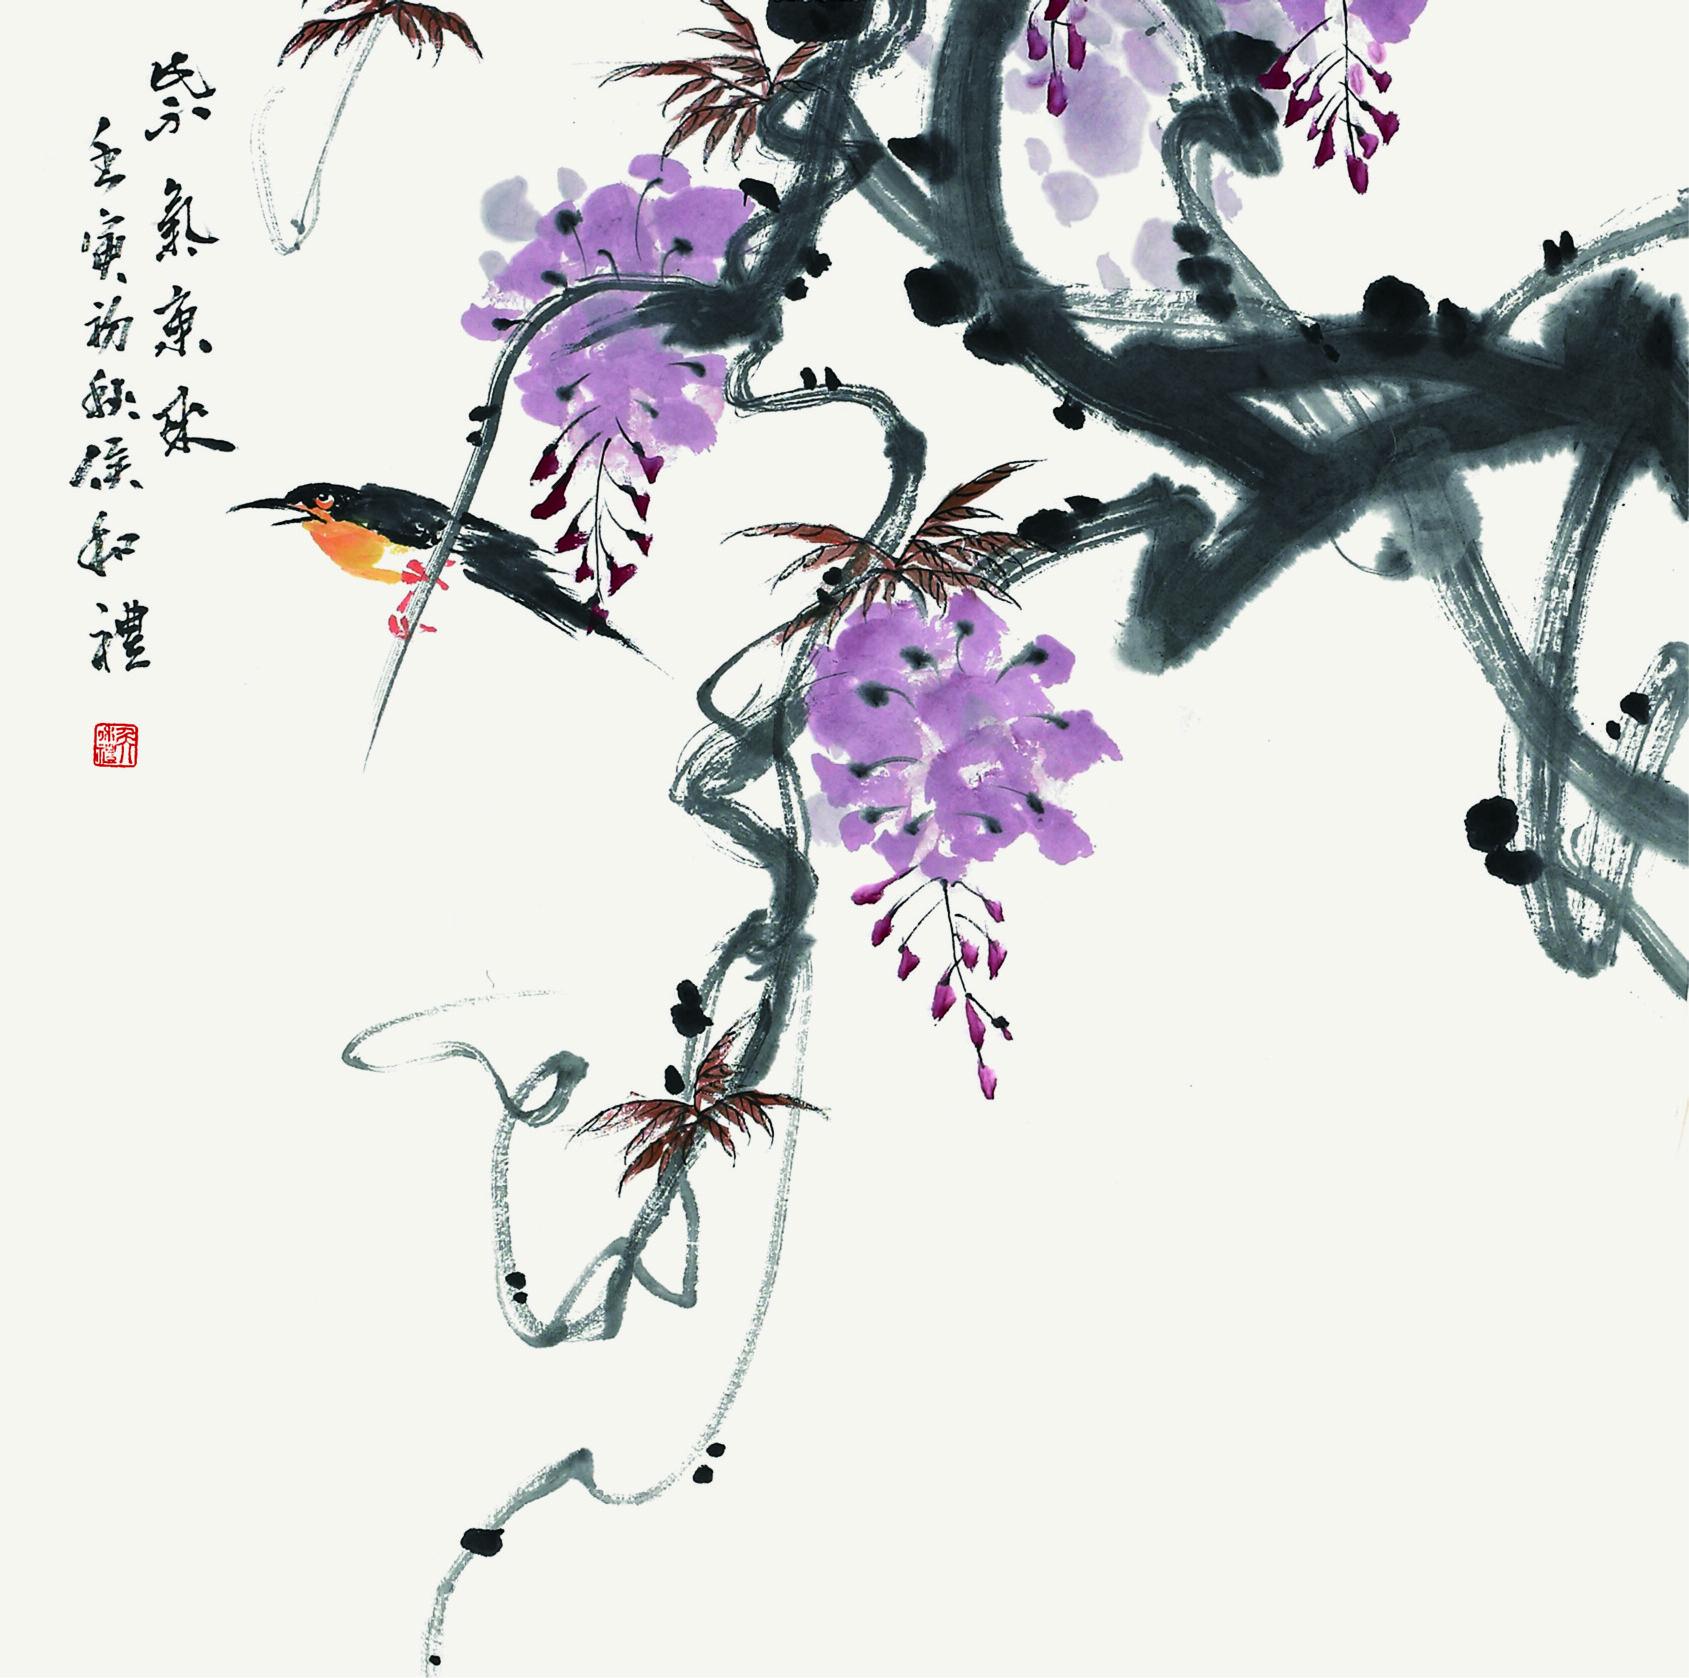 紫氣東来
壬寅初秋侯和禮